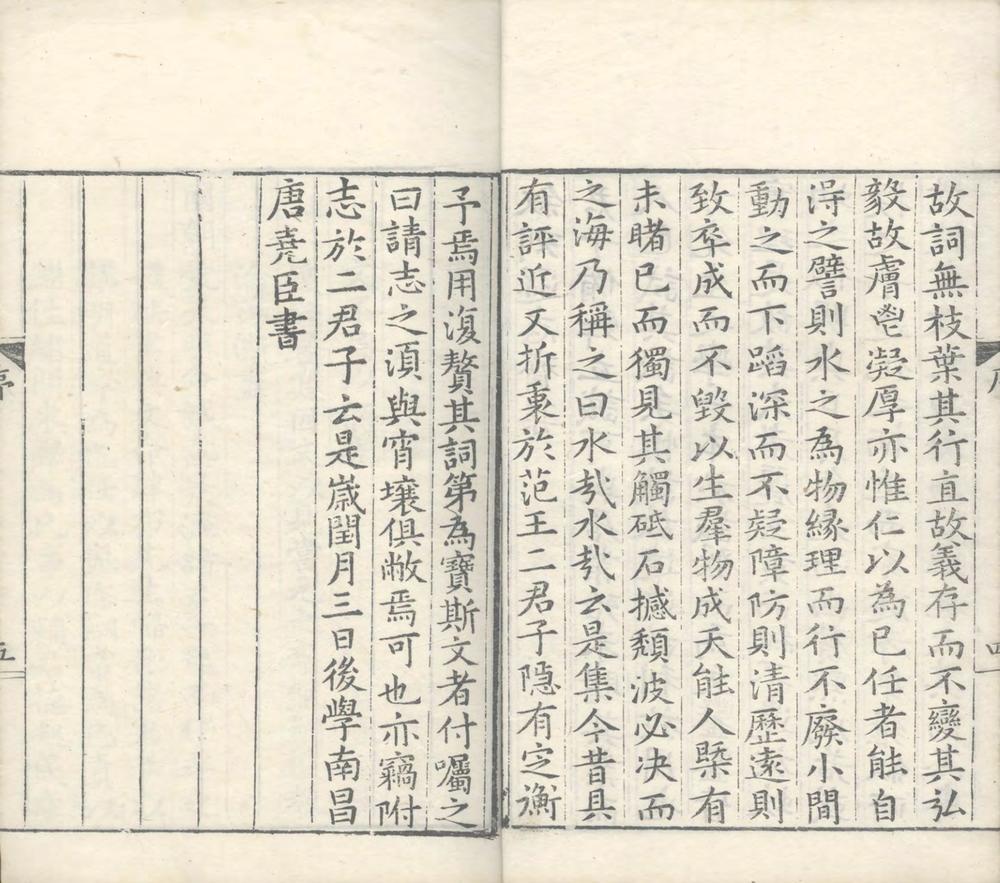 故詞無枝葉其行直故義存而不變其弘
毅故膚鬯凝厚亦惟仁以為已任者能自
淂之譬則水之為物緣理而行不廢小間
動之而下蹈深而不疑障防則清歷遠則
致卒成而不毀以生羣物成天能人槩有
未睹已而獨見其觸砥石撼頹波必決而
之海乃稱之曰水㢤水㢤云是集今昔具
有評近又折衷於范王二君子隱有定衡
予焉用復贅其詞第為寶斯文者付囑之
曰請志之湏與宵壤俱敝焉可也亦竊附
志於二君子云是嵗閏月三日後學南昌
唐堯臣書
四
序
五